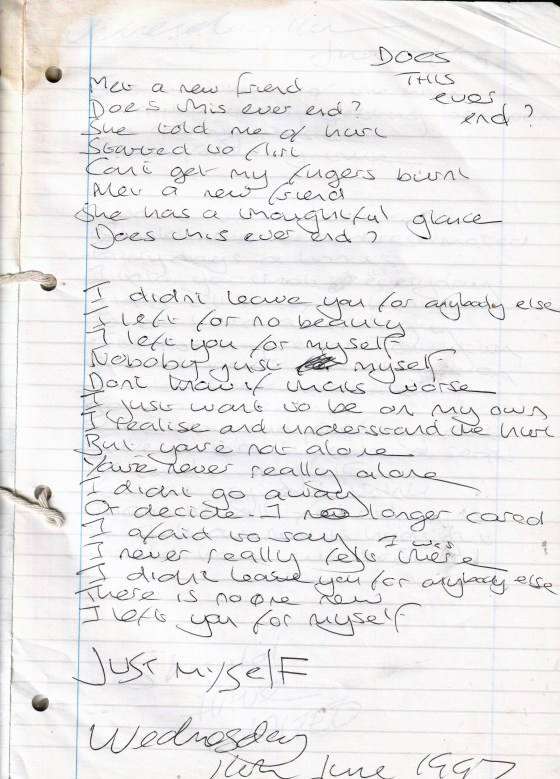 DOES
THIS
ever
end?
Met a new friend
Does this ever end?
She told me of hurt
Started to flirt
Cant get my fingers burnt
Met a new friend
She has a thoughtful glance
Does this ever end?
I didnt leave you for anybody else
I left for no beauty
I left you for myself
Noboby just myself
Dont know if thats worse
I just want to be on my own
I realise and understand the hurt
But you're not alone
You're never really alone
I didnt go away
Or decide I no longer cared
I afraid to say
I never really felt I was there
I didnt leave you for anybody else
There is no one new
I left you for myself
JUST MYSELF
Wednesday
June 1997